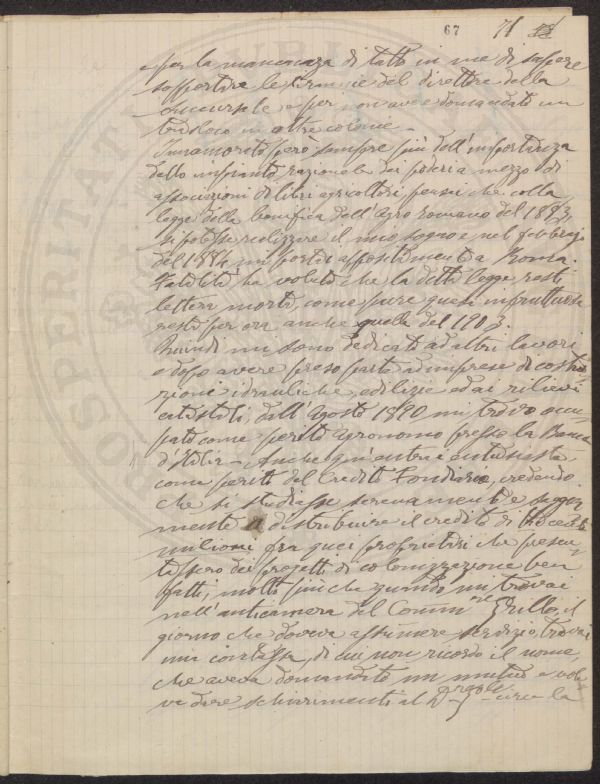 67 71
e per la mancanza di tatto in me di sapere
sopportare le tirannie del direttore della
succursale e per non avere domandato un
trasloco in altre colonie.
Innamorato però sempre più dell'importanza
dello impianto razionale dei poderi a mezzo di
associazioni di liberi agricoltori pensai che colla
legge della bonifica dell'Agro romano del 1883,
si potesse realizzare il mio sogno e nel febbrajo
del 1884 mi portai appositamente a Roma.
Fatalità ha voluto che la detta legge resti
lettera morta, come pure quasi infruttuosa
resta per ora anche quella del 1903.
Quindi mi sono dedicato ad altri lavori
e dopo avere preso parte ad imprese di costru-
zioni idrauliche, edilizie ed ai rilievi
catastali, dall'agosto 1890 mi trovo occu-
pato come perito agronomo presso la Banca
d'Italia. Anche qui entrai entusiasta
come perito del Credito Fondiario, credendo
che si studiasse serenamente e
mente a distribuire il credito di trecento
milioni fra quei proprietari che presen-
tassero dei progetti di colonizzazione ben
fatti; molto più che quando mi trovai
nell'anticamera del Comm.re Grillo, il
giorno che doveva assumere servizio, trovai
una contessa, di cui non ricordo il nome,
che aveva domandato un mutuo e vole-
va dare schiarimenti al circa la